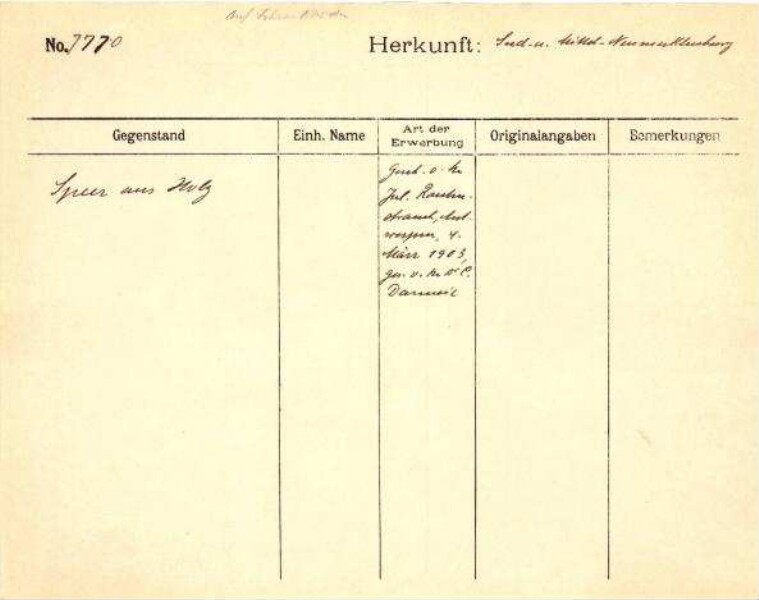 Auf
No. 7770 Herkunft: Süd- u. Mittel-Neumecklenburg
Gegenstand Einh. Name Art der Erwerbung Originalangaben Bemerkungen
Speer aus Holz
Gesch. v. Hr.
Jul.
werpen, 4.
März 1903,
ges. v. Hr. Dr. C.